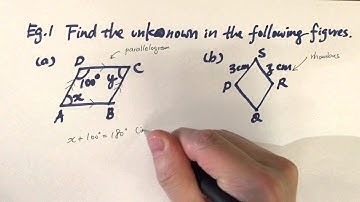 Eg.1 Find the unknown in the following figures.
(a) parallelogram
D C
100° y
x
A B
x + 100° = 180° (in
(b) rhombus
S
3cm z cm
P R
Q